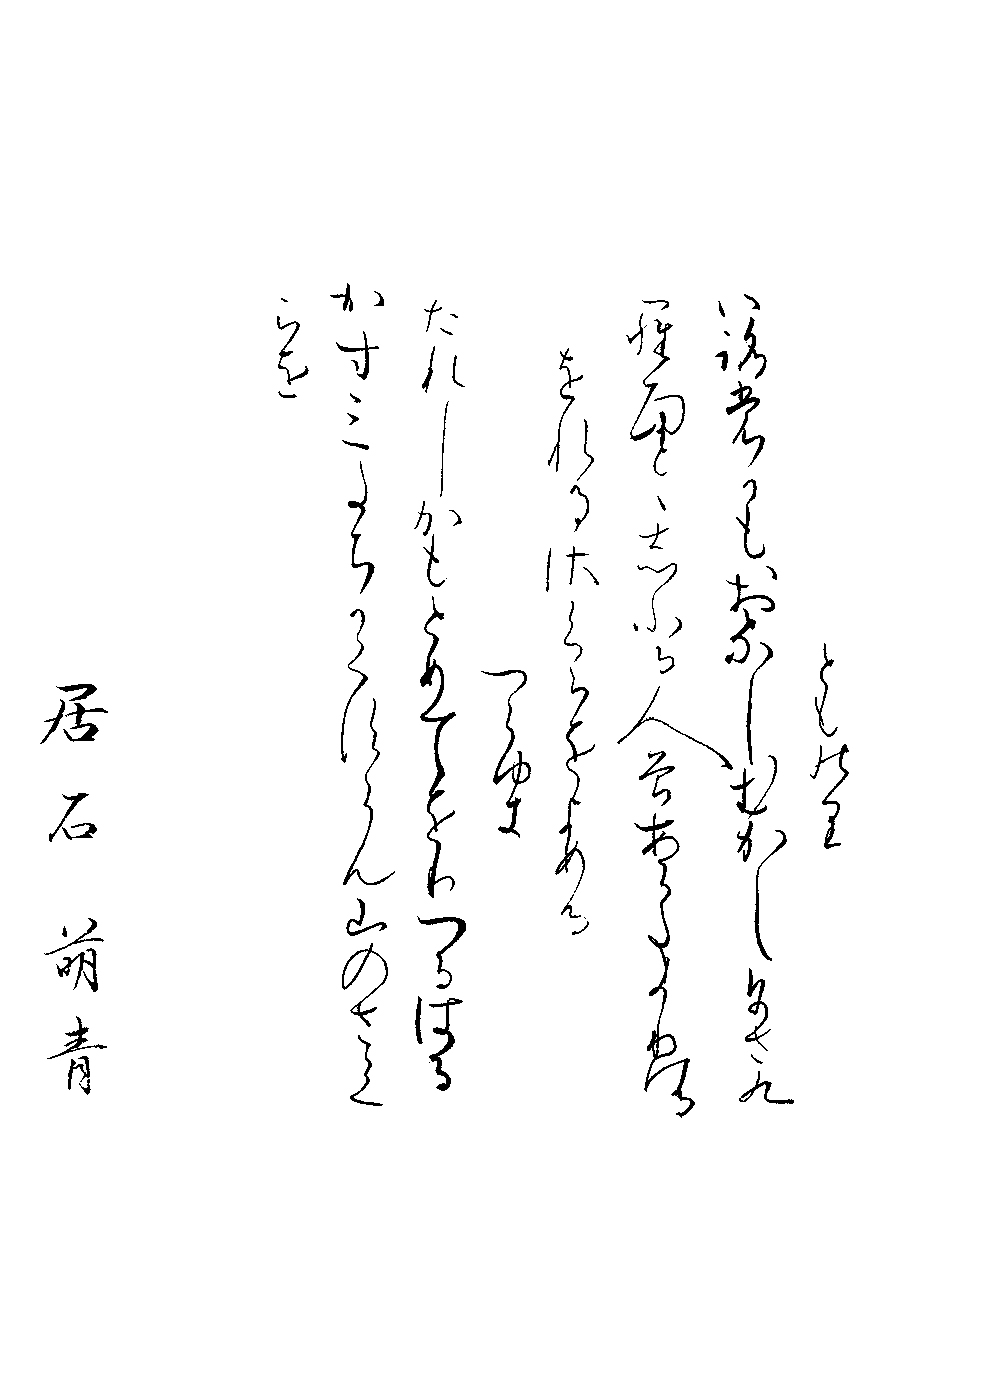 とものり
いろもかもおなしむかしにさく
らめとゝしふる人そあらたまりける
をれるさくらをよめる
つらゆき
たれしかもとめてをりつるはる
かすみたちかくすらん山のさく
らを
居石萌青